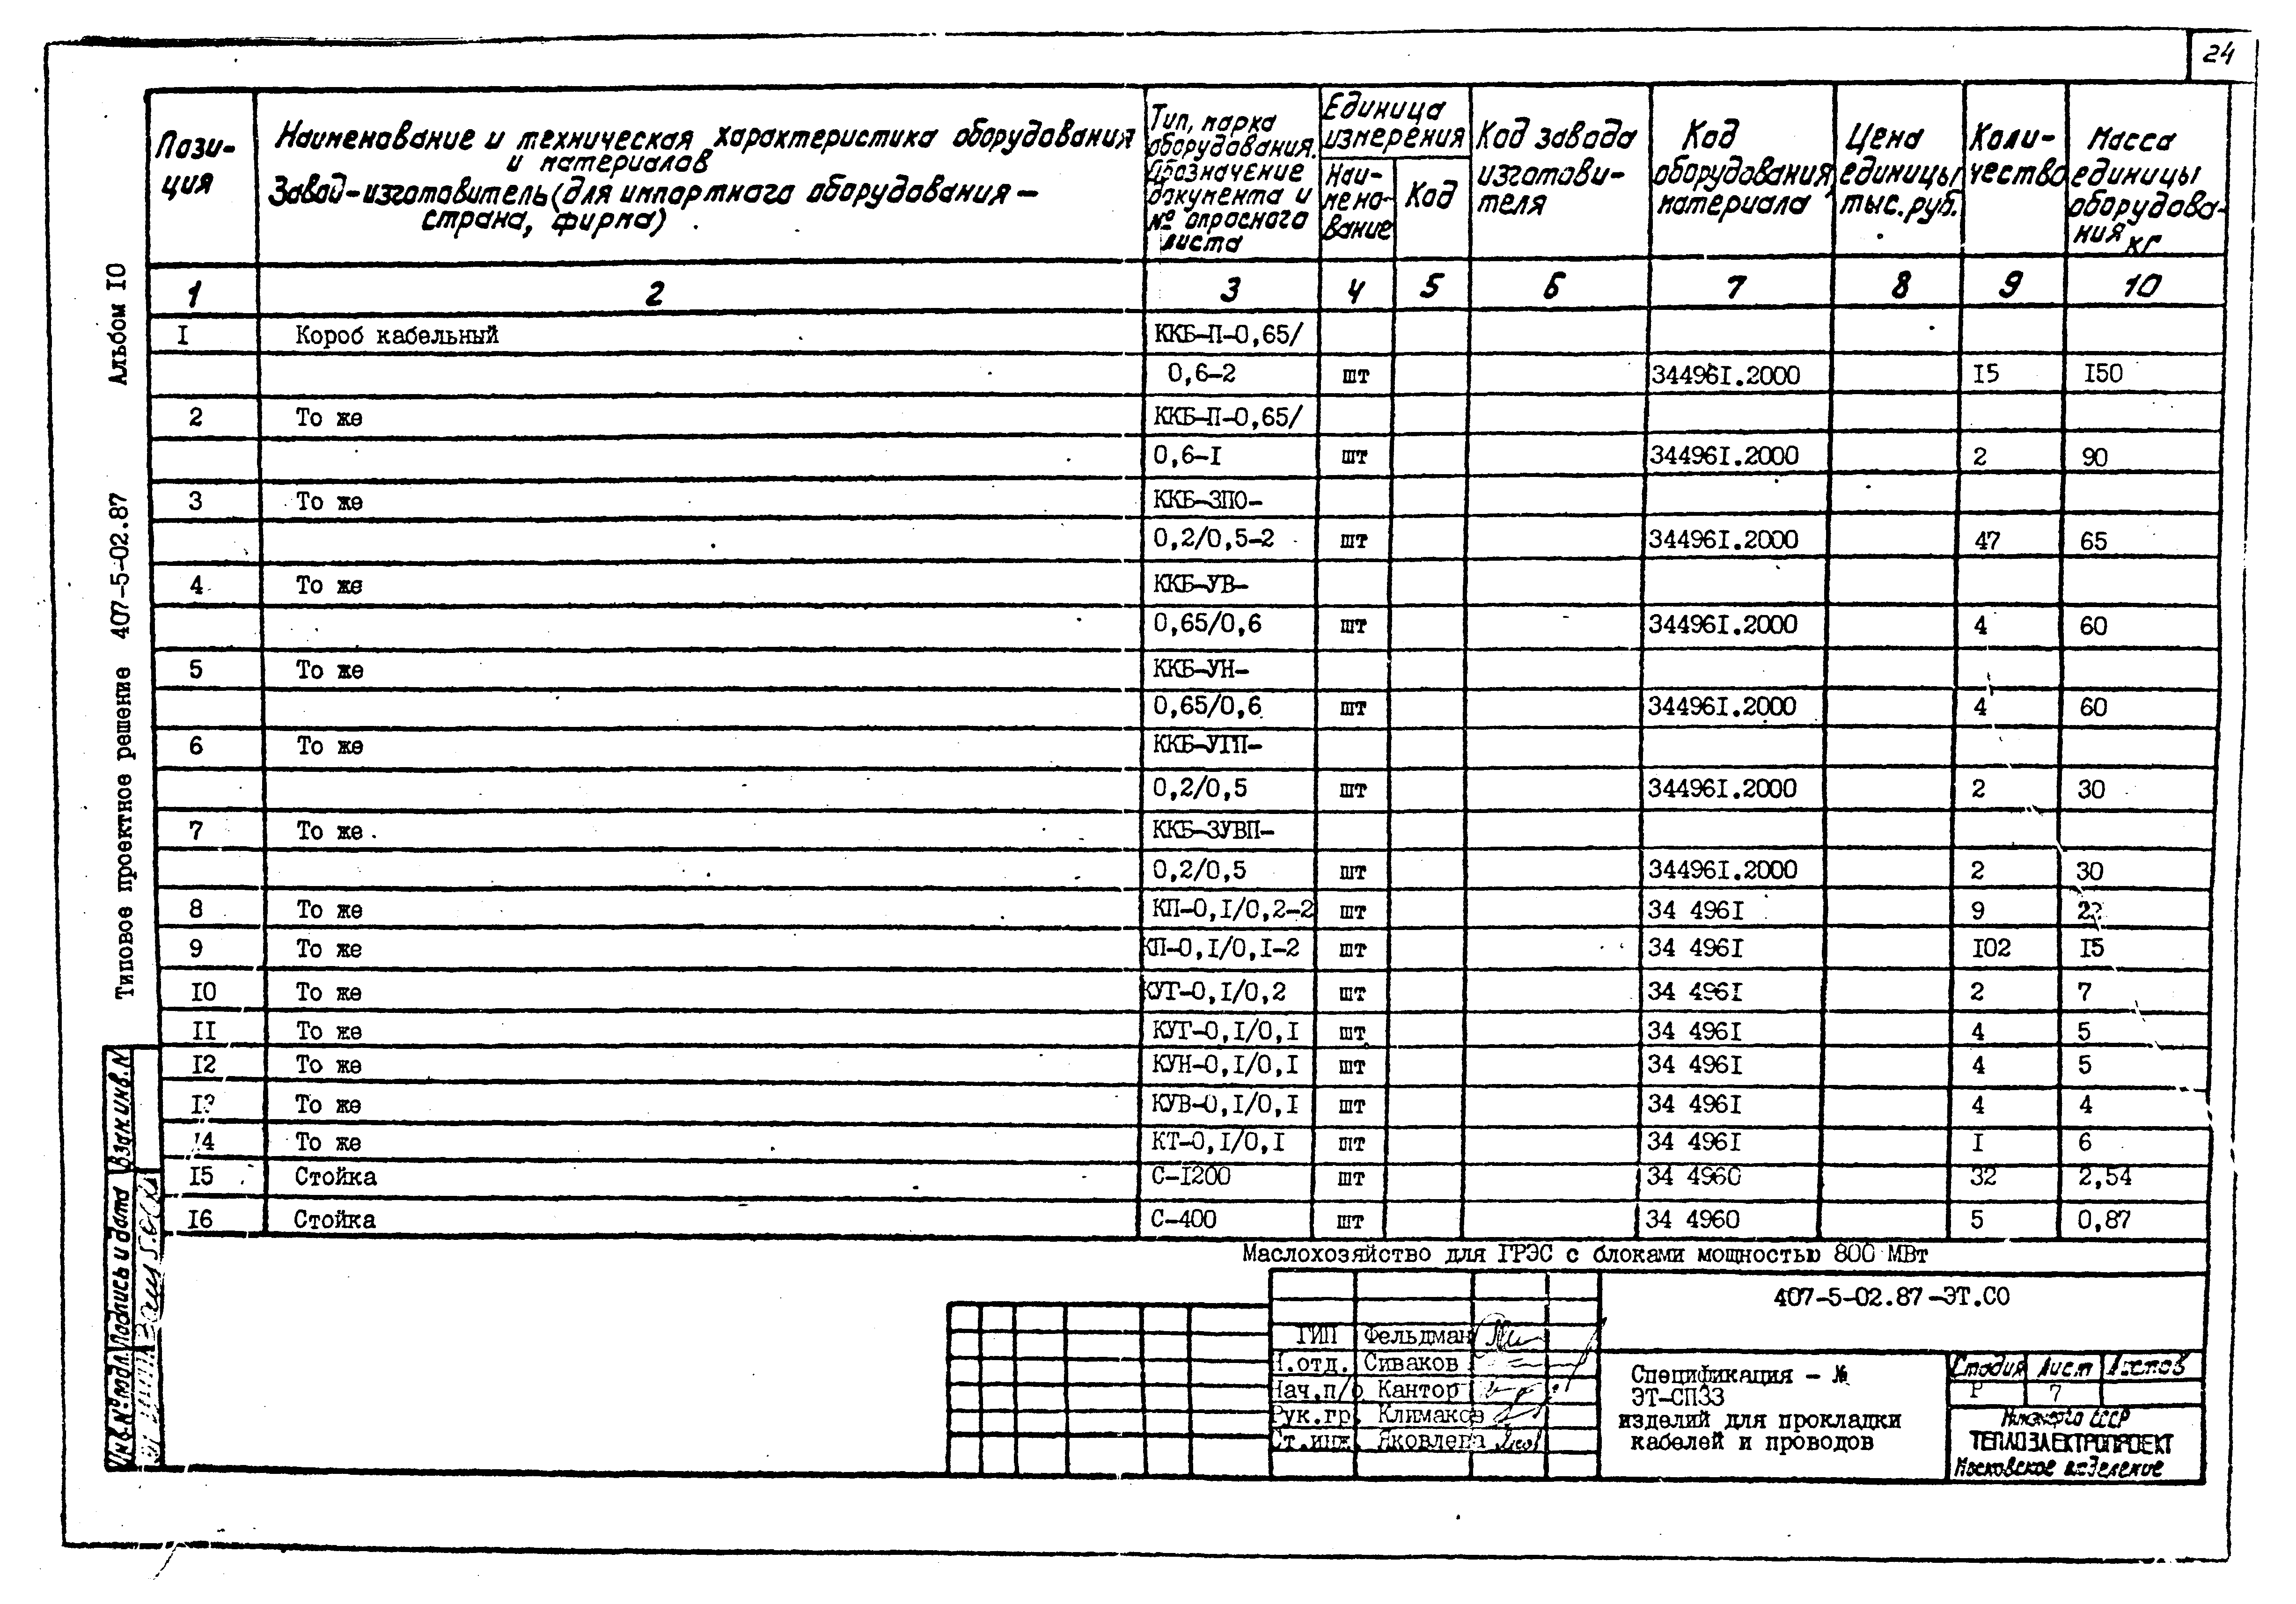 24
Типовое проектное решение 407-5-02.87 Альбом I0
Пози-
ция
Наименование и техническая характеристика оборудования
и материалов
Завод-изготовитель (для импортного оборудования –
страна, фирма)
Тип, марка
оборудования.
Обозначение
документа и
№ опросного
листа
Единица
измерения
Наи-
мено-
вание
Код
Код завода
изготови-
теля
Код
оборудования,
материала
Цена
единицы
тыс.руб.
Коли-
чество
Масса
единицы
оборудова-
ния кг
1 2 3 4 5 6 7 8 9 10
I Короб кабельный ККБ-П-0,65/
0,6-2 шт 34496I.2000 I5 I50
2 То же ККБ-П-0,65/
0,6-I шт 34496I.2000 2 90
3 То же ККБ-ЗПО-
0,2/0,5-2 шт 34496I.2000 47 65
4 То же ККБ-УВ-
0,65/0,6 шт 34496I.2000 4 60
5 То же ККБ-УН-
0,65/0,6 шт 34496I.2000 4 60
6 То же ККБ-УГП-
0,2/0,5 шт 34496I.2000 2 30
7 То же ККБ-ЗУВП-
0,2/0,5 шт 34496I.2000 2 30
8 То же КП-0,I/0,2-2 шт 34 496I 9
9 То же КП-0,I/0,I-2 шт 34 496I I02 I5
I0 То же КУГ-0,I/0,2 шт 34 496I 2 7
II То же КУГ-0,I/0,I шт 34 496I 4 5
I2 То же КУН-0,I/0,I шт 34 496I 4 5
I3 То же КУВ-0,I/0,I шт 34 496I 4 4
I4 То же КТ-0,I/0,I шт 34 496I I 6
I5 Стойка С-I200 шт 34 4960 32 2,54
I6 Стойка С-400 шт 34 4960 5 0,87
Маслохозяйство для ГРЭС с блоками мощностью 800 МВт
407-5-02.87-ЭТ.СО
ГИП Фельдман
Н.отд. Сиваков
Нач.п/о Кантор
Рук.гр. Климаков
Ст.инж. Яковлева
Спецификация – №
ЭТ-СП33
изделий для прокладки
кабелей и проводов
Стадия Лист Листов
Р 7
Минэнерго СССР
ТЕПЛОЭЛЕКТРОПРОЕКТ
Московское отделение
Инв.№ подл. Подпись и дата Взам.инв.№